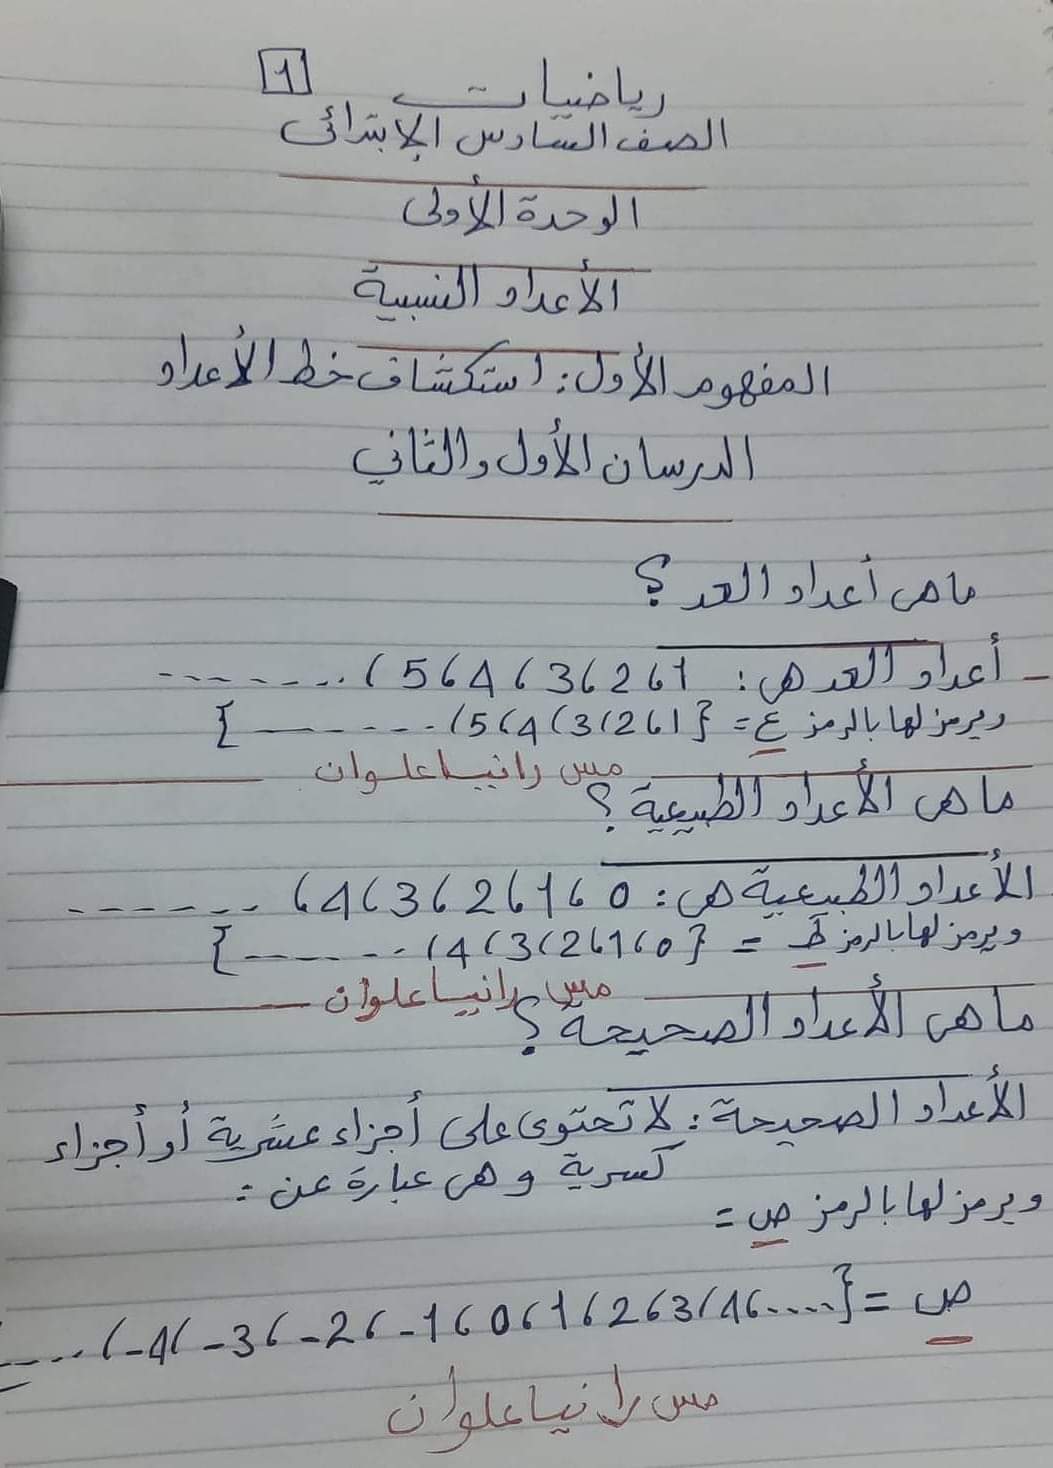 1
رياضيات
الصف السادس الإبتدائى
الوحدة الأولى
الأعداد النسبية
المفهوم الأول: استكشاف خط الأعداد
الدرسان الأول والثاني
ما هى أعداد العد؟
- أعداد العد هى: 1، 2، 3، 4، 5، ........
ويرمز لها بالرمز ع = {1، 2، 3، 4، 5، ........}
مس رانيا علوان
ما هى الأعداد الطبيعية؟
الأعداد الطبيعية هى: 0، 1، 2، 3، 4، ........
ويرمز لها بالرمز ط = {0، 1، 2، 3، 4، ........}
مس رانيا علوان
ما هى الأعداد الصحيحة؟
الأعداد الصحيحة: لا تحتوى على أجزاء عشرية أو أجزاء
كسرية وهى عبارة عن:
ويرمز لها بالرمز ص =
ص = {....، 4، 3، 2، 1، 0، 1-، 2-، 3-، 4-، ....}
مس رانيا علوان